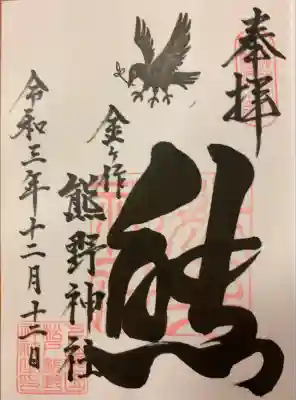 奉拝
熊
金ヶ作
熊野神社
令和三年十二月十二日